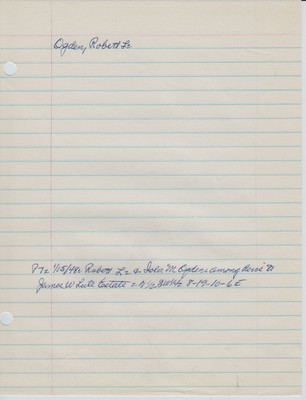 Ogden, Robert L.
1/15/48 Robert L. & Iola M. Ogden among heirs
James W Lull Estate N½ SW¼ 8-19-10-6E